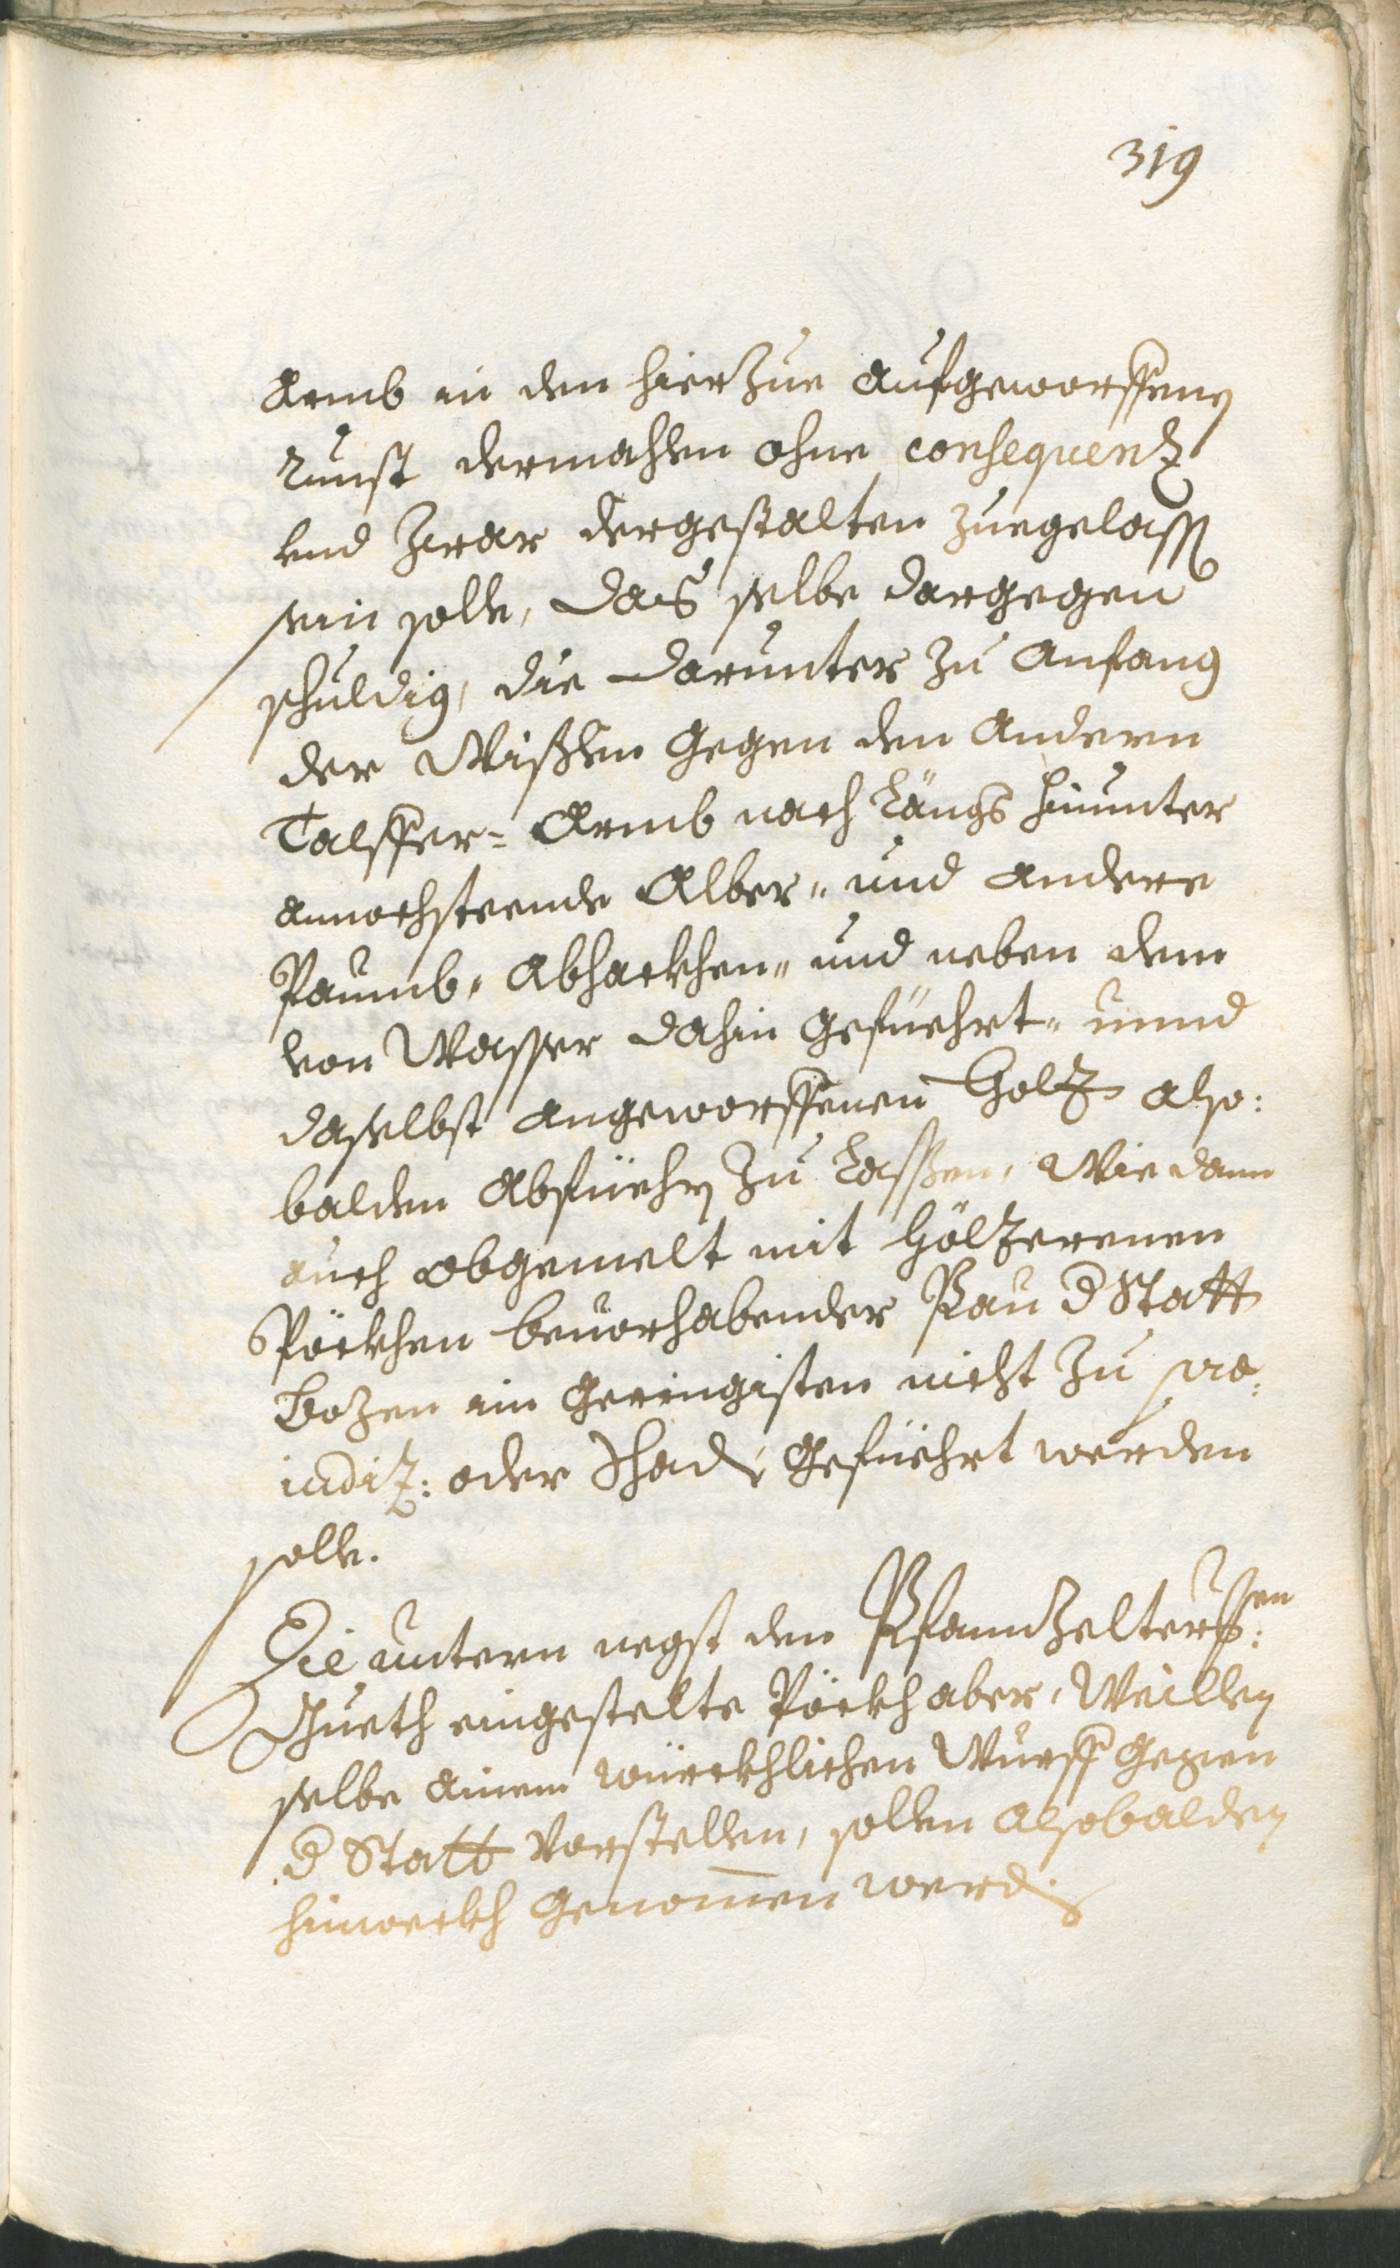 319
Armb in den hierzue aufgeworffenen
Runst dermahlen ohne consequenz
und zwar dergestalten zuegelassen
sein solle, das selbe dargegen
schuldig, die darunter zu Anfang
der Wisen gegen den anderen
Talffer= Armb nach Längs hinunter
annochsteende Alber- und andere
Paumb, abhackhen- und neben dem
von Wasser dahin gefüehrt- unnd
daselbst angeworffenen Holz also:
balden abfüehren zu lassen, Wie dann
auch obgemelt mit hölzerenen
Pöckhen bevorhabender Pau der Statt
Bozen im geringisten nicht zu prae:
iudiz: oder Schaden gefüehrt werden
solle.
Die untern negst den Pfannzelterischen
Gueth eingestelte Pöckh aber, Weillen
selbe ainem würckhlichen Wurff gegen
der Statt vorstellen, sollen alsobalden
hinweckh genommen werden